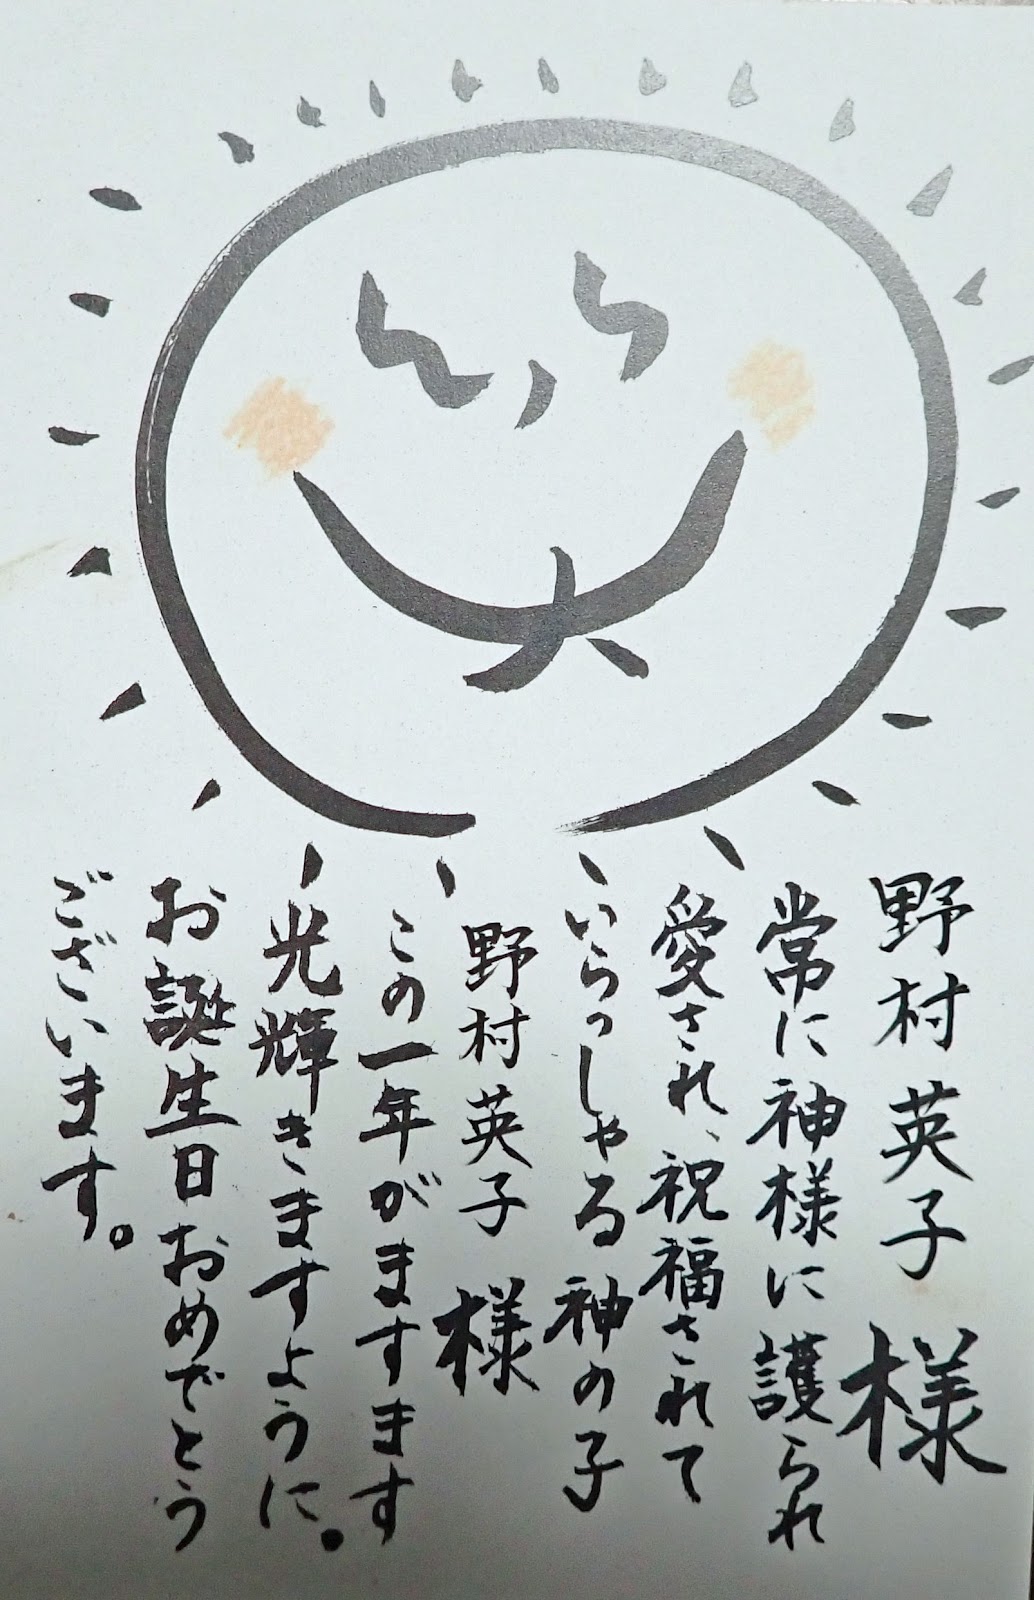 野村英子様
常に神様に護られ
愛され、祝福されて
いらっしゃる神の子
野村英子様
この一年がますます
光輝きますように。
お誕生日おめでとう
ございます。